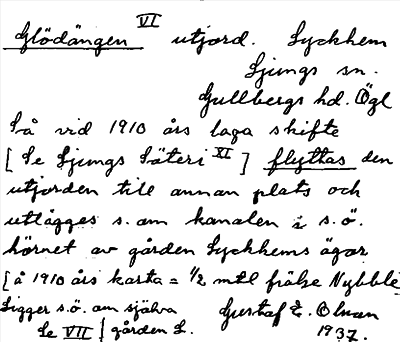 VI
Glödängen utjord. Lyckhem
Ljungs sn.
Gullbergs hd. Ögl
Så vid 1910 års laga skifte
[ Se Ljungs Säteri XI ] flyttas den
utjorden till annan plats och
utlägges s. om kanalen i s.ö.
hörnet av gården Lyckhems ägor
[ å 1910 års karta = 1/2 mtl frälse Nybble
Ligger s.ö. om själva Gustaf E. Olson
Se VII [ gården L. 1937.